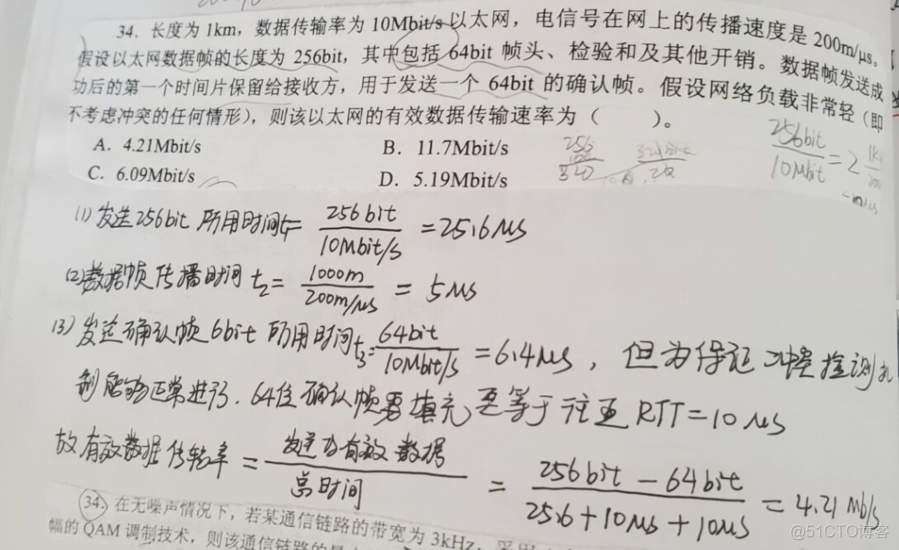 34. 长度为 1km,数据传输率为 10Mbit/s 以太网,电信号在网上的传播速度是 200m/μs。
假设以太网数据帧的长度为 256bit,其中包括 64bit 帧头、检验和及其他开销。数据帧发送成
功后的第一个时间片保留给接收方,用于发送一个 64bit 的确认帧。假设网络负载非常轻(即
不考虑冲突的任何情形),则该以太网的有效数据传输速率为( )。
A. 4.21Mbit/s B. 11.7Mbit/s
C. 6.09Mbit/s D. 5.19Mbit/s
256bit
10Mbit = 2
(1) 发送256bit 所用时间t₁= 256bit / 10Mbit/s = 25.6μs
(2) 数据帧传播时间 t₂= 1000m / 200m/μs = 5μs
(3) 发送确认帧6bit 所用时间t₃= 64bit / 10Mbit/s = 6.4μs, 但为保证冲突检测机
制能够正常进行. 64位确认帧要填充至等于往返 RTT=10μs
故有效数据传输率 = 发送的有效数据 / 总时间 = 256bit - 64bit / 25.6+10μs+10μs = 4.21 Mb/s
34. 在无噪声情况下,若某通信链路的带宽为 3kHz,采用
幅的 QAM 调制技术,则该通信链路的
@51CTO博客